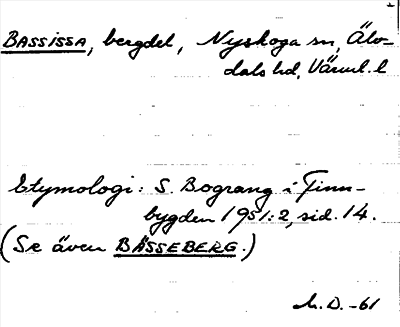 BASSISSA, bergdel, Nyskoga sn, Älv-
dals hd, Värml. l
Etymologi: S. Bograng i Finn-
bygden 1951:2, sid. 14.
(Se även BÄSSEBERG.)
M. D. -61